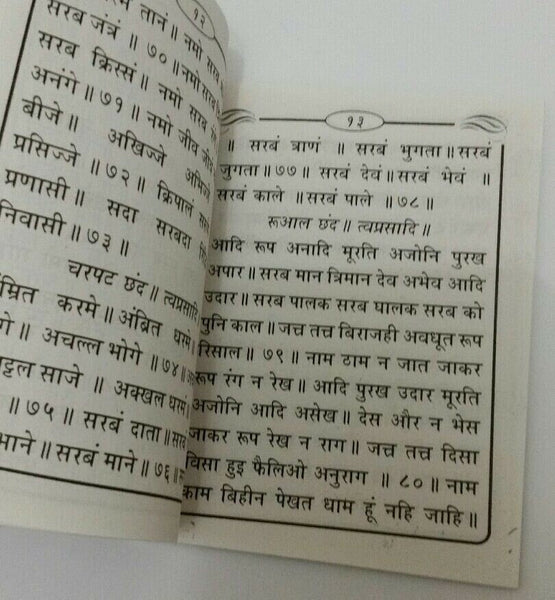 १२
तानं॥ नमो सरब
सरब जंत्रं ॥ ७०॥ नमो
सरब क्रिस्सं॥ नमो सरब
अनंगे॥ ७१॥ नमो जीव
बीजे॥ अखिज्जे
प्रसिज्जे ॥ ७२॥ क्रिपालं
प्रणासी॥ सदा सरबदा
निवासी॥ ७३॥
चरपट छंद॥ त्वप्रसादि
म्रित करमे॥ अंब्रित धरमे
॥ अचल्ल भोगे ॥ ७४॥
साजे ॥ अक्खल धरमं
॥ ७५॥ सरबं दाता॥
॥ सरबं माने॥ ७६॥
१३
॥ सरबं त्राणं ॥ सरबं भुगता॥सरबं
जुगता॥७७॥ सरबं देवं॥सरबं भेवं ॥
सरबं काले ॥सरबं पाले ॥ ७८॥
रूआल छंद॥ त्वप्रसादि॥
आदि रूप अनादि मूरति अजोनि पुरख
अपार॥ सरब मान त्रिमान देव अभेव आदि
उदार॥ सरब पालक सरब घालक सरब को
पुनि काल॥ जत्त तत्त बिराजही अवधूत रूप
रिसाल॥ ७९॥ नाम ठाम न जात जाकर
रूप रंग न रेख॥ आदि पुरख उदार मूरति
अजोनि आदि असेख॥ देस और न भेस
जाकर रूप रेख न राग॥ जत्त तत्त दिसा
विसा हुइ फैलिओ अनुराग ॥ ८०॥ नाम
काम बिहीन पेखत धाम हूं नहि जाहि॥